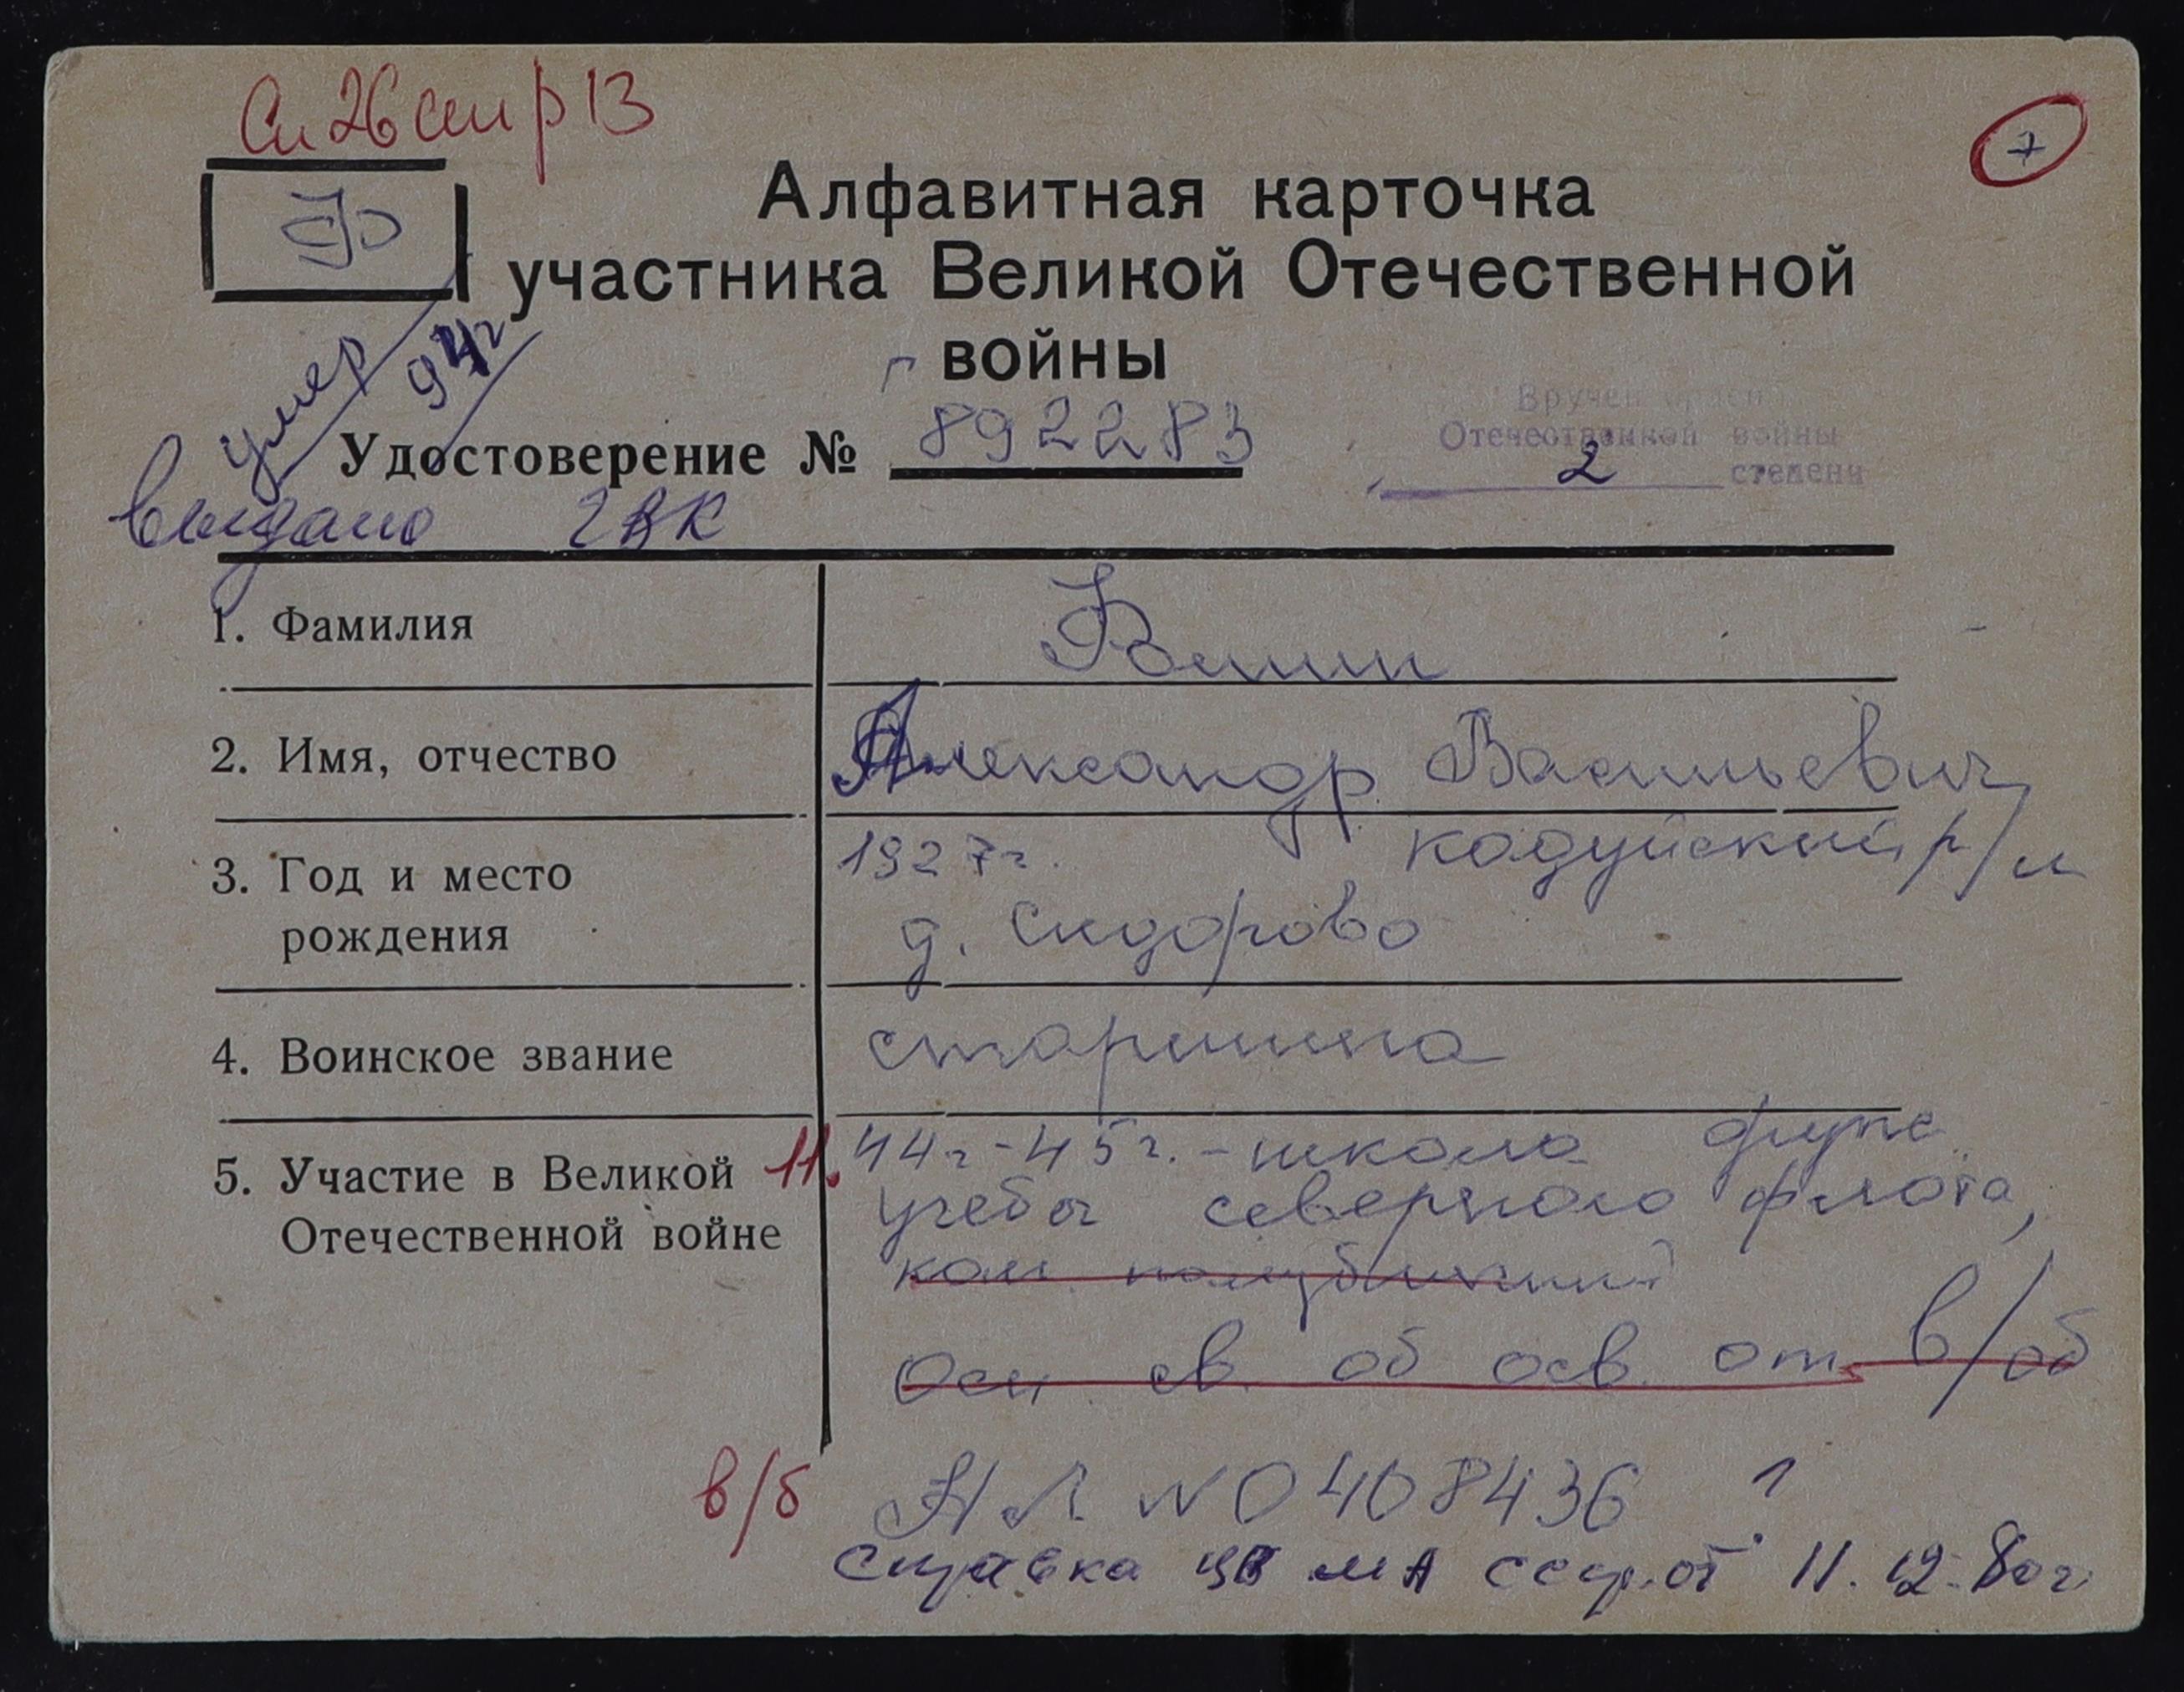 Сп 26 стр 13
Ф
7
Алфавитная карточка
участника Великой Отечественной
войны
умер
94г
Удостоверение № Г 892283
Вручен орден
Отечественной войны
2 степени
выдано ГВК
1. Фамилия
Фомин
2. Имя, отчество
Александр Васильевич
3. Год и место
рождения
1927г. Кадуйский р/н
д. Сидорово
4. Воинское звание
старшина
5. Участие в Великой
Отечественной войне
11.44г-45г. - школа
учебы северного флота,
ком
осн св. об осв. от в/об
в/б НЛ № 0408436
справка ЦВМА ссср. от 11.12.80г.